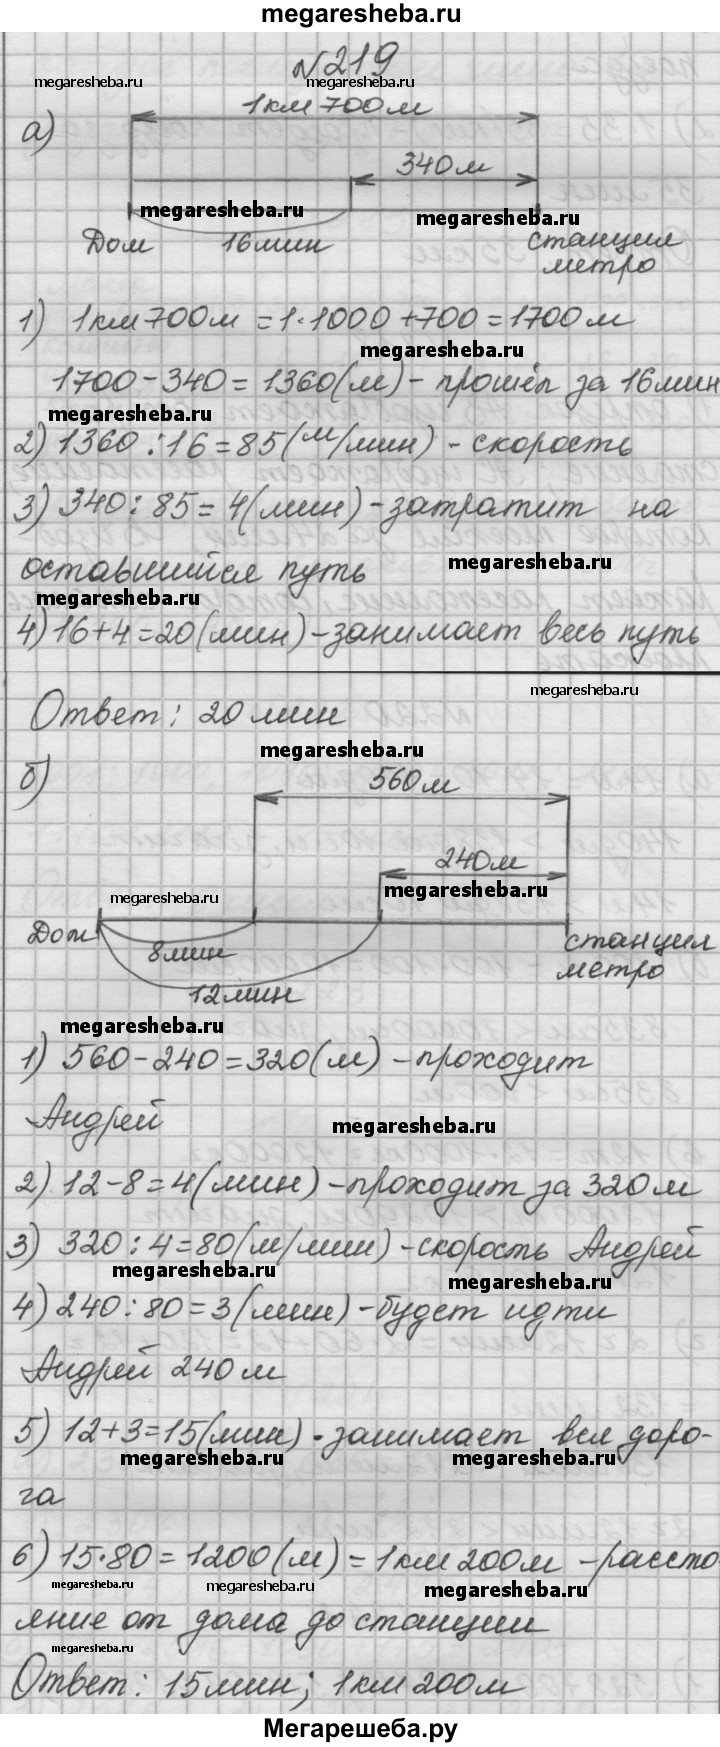 megaresheba.ru
№219
megaresheba.ru
megaresheba.ru
а)
1км 700м
340м
megaresheba.ru
megaresheba.ru
Дом 16мин станция
метро
1) 1км 700м = 1·1000 + 700 = 1700м
megaresheba.ru
1700 - 340 = 1360(м) - прошёл за 16мин
megaresheba.ru
2) 1360 : 16 = 85(м/мин) - скорость
3) 340 : 85 = 4(мин) - затратит на
megaresheba.ru
оставшийся путь
megaresheba.ru
4) 16 + 4 = 20(мин) - занимает весь путь
megaresheba.ru
Ответ: 20мин
megaresheba.ru
б)
560м
240м
megaresheba.ru
megaresheba.ru
Дом
8мин
12мин
станция
метро
megaresheba.ru
1) 560 - 240 = 320(м) - проходит
Андрей
megaresheba.ru
2) 12 - 8 = 4(мин) - проходит за 320м
3) 320 : 4 = 80(м/мин) - скорость Андрей
megaresheba.ru
megaresheba.ru
4) 240 : 80 = 3(мин) - будет идти
Андрей 240м
5) 12 + 3 = 15(мин) - занимает вся доро-
megaresheba.ru
megaresheba.ru
га
6) 15·80 = 1200(м) = 1км 200м - рассто-
megaresheba.ru
megaresheba.ru
megaresheba.ru
яние от дома до станции
megaresheba.ru
Ответ: 15мин; 1км 200м
Мегарешеба.ру